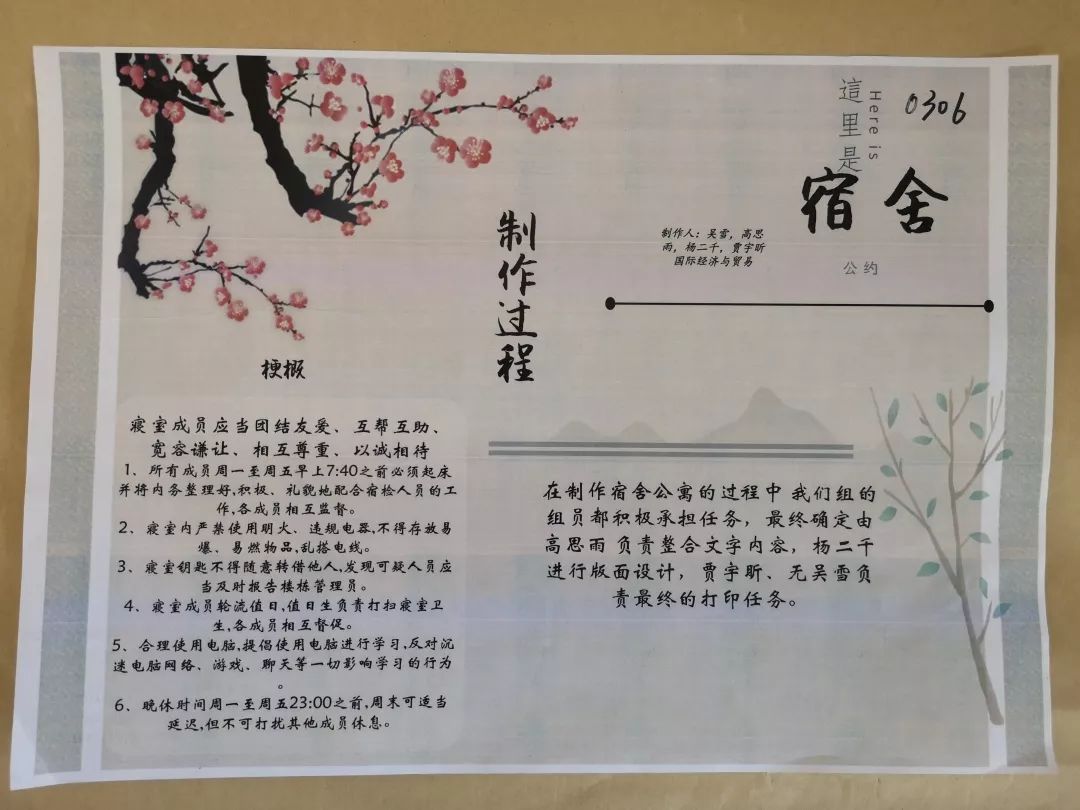 0306
這里是
Here is
宿舍
公约
制作人：吴雪，高思
雨，杨二千，贾宇昕
国际经济与贸易
制作过程
梗概
寝室成员应当团结友爱、互帮互助、
宽容谦让、相互尊重、以诚相待
1、所有成员周一至周五早上7:40之前必须起床
并将内务整理好,积极、礼貌地配合宿检人员的工
作,各成员相互监督。
2、寝室内严禁使用明火、违规电器,不得存放易
爆、易燃物品,乱搭电线。
3、寝室钥匙不得随意转借他人,发现可疑人员应
当及时报告楼栋管理员。
4、寝室成员轮流值日,值日生负责打扫寝室卫
生,各成员相互督促。
5、合理使用电脑,提倡使用电脑进行学习,反对沉
迷电脑网络、游戏、聊天等一切影响学习的行为
。
6、晚休时间周一至周五23:00之前,周末可适当
延迟,但不可打扰其他成员休息。
在制作宿舍公寓的过程中 我们组的
组员都积极承担任务，最终确定由
高思雨 负责整合文字内容，杨二千
进行版面设计，贾宇昕、无吴雪负
责最终的打印任务。